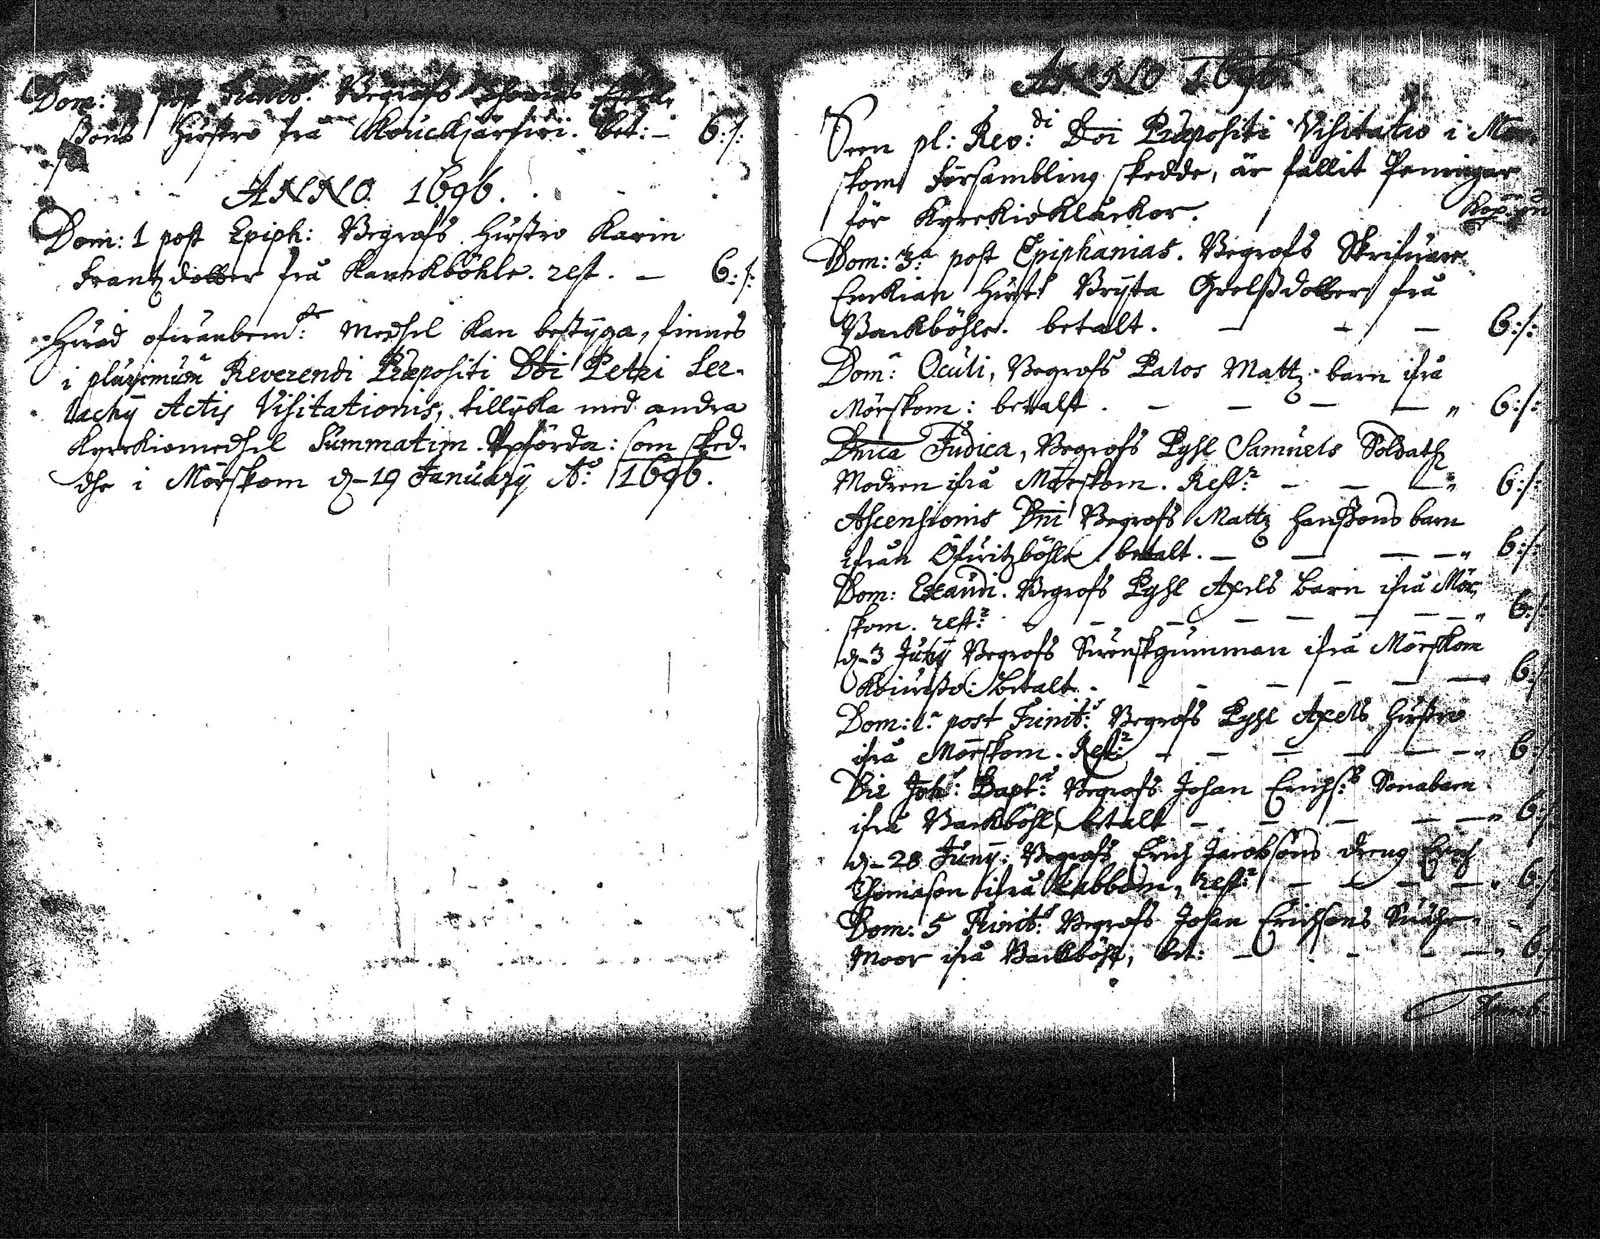 Dom: post Trinit: Begrofs Thomas
Sons Hustro frå Mouckjärfwi. bet: – 6:/:
ANNO. 1696.
Dom: 1 post Epiph: Begrofs Hustro Karin
Frantzdotter frå Kanckböhle. rest. – 6:/:
Hwad ofwanbem:te Medhel kan bestyga, finnes
i plurimùm Reverendi Præpositi Dni Petri Ser-
lachij Actis Visitationis, tillijka med andra
Kyrkiomedhel Summatim Opförda: som sked-
dhe i Mörskom d-19 Januarij A:o 1696.
ANNO 1696.
Seen pl: Rev:di Dni Præpositi Visitatio i Mör-
skom Försambling skedde, är fallit Penningar
för Kyrkioklåckor. Kop: m
Dom: 3:a post Epiphanias. Begrofs Skrifware
Enkian Hust: Brijta Grelsdotter frå
Backböhle. betalt. – – – 6:/:
Dom: Oculi, Begrofs Palos Mattz barn ifrå
Mörskom: betalt. – – – – " 6:/:
Dnica Judica, Begrofs Pyhl Samuels Soldatz
Modren ifrå Mörskom. Rest: – – – " 6:/:
Ascensionis Dni Begrofs Mattz Hanssons barn
ifrån Öfwitzböhle betalt. – – – – " 6:/:
Dom: Exaudi. Begrofs Pyhl Axels Barn ifrå Mör-
skom. rest: – – – – – – " 6:/:
d-3 Junij Begrofs Swenskgumman ifrå Mörskom
betalt. – – – – – – 6:/:
Dom: 1:a post Trinit: Begrofs Pyhl Axels Hustro
ifrå Mörskom. Rest: – – – – – " 6:/:
Die Joh: Bapt: Begrofs Johan Erichs: Sonabarn
ifrå Backböhle, betalt – – – – – " 6:/:
d-28 Junij: Begrofs Erich Jacobsons dreng Erich
Thomason ifrå Labbom, rest: – – – – " 6:/:
Dom: 5 Trinit: Begrofs Johan Erichsons Swähr-
Moor ifrå Backböhl, bet: – – – – – " 6:/: